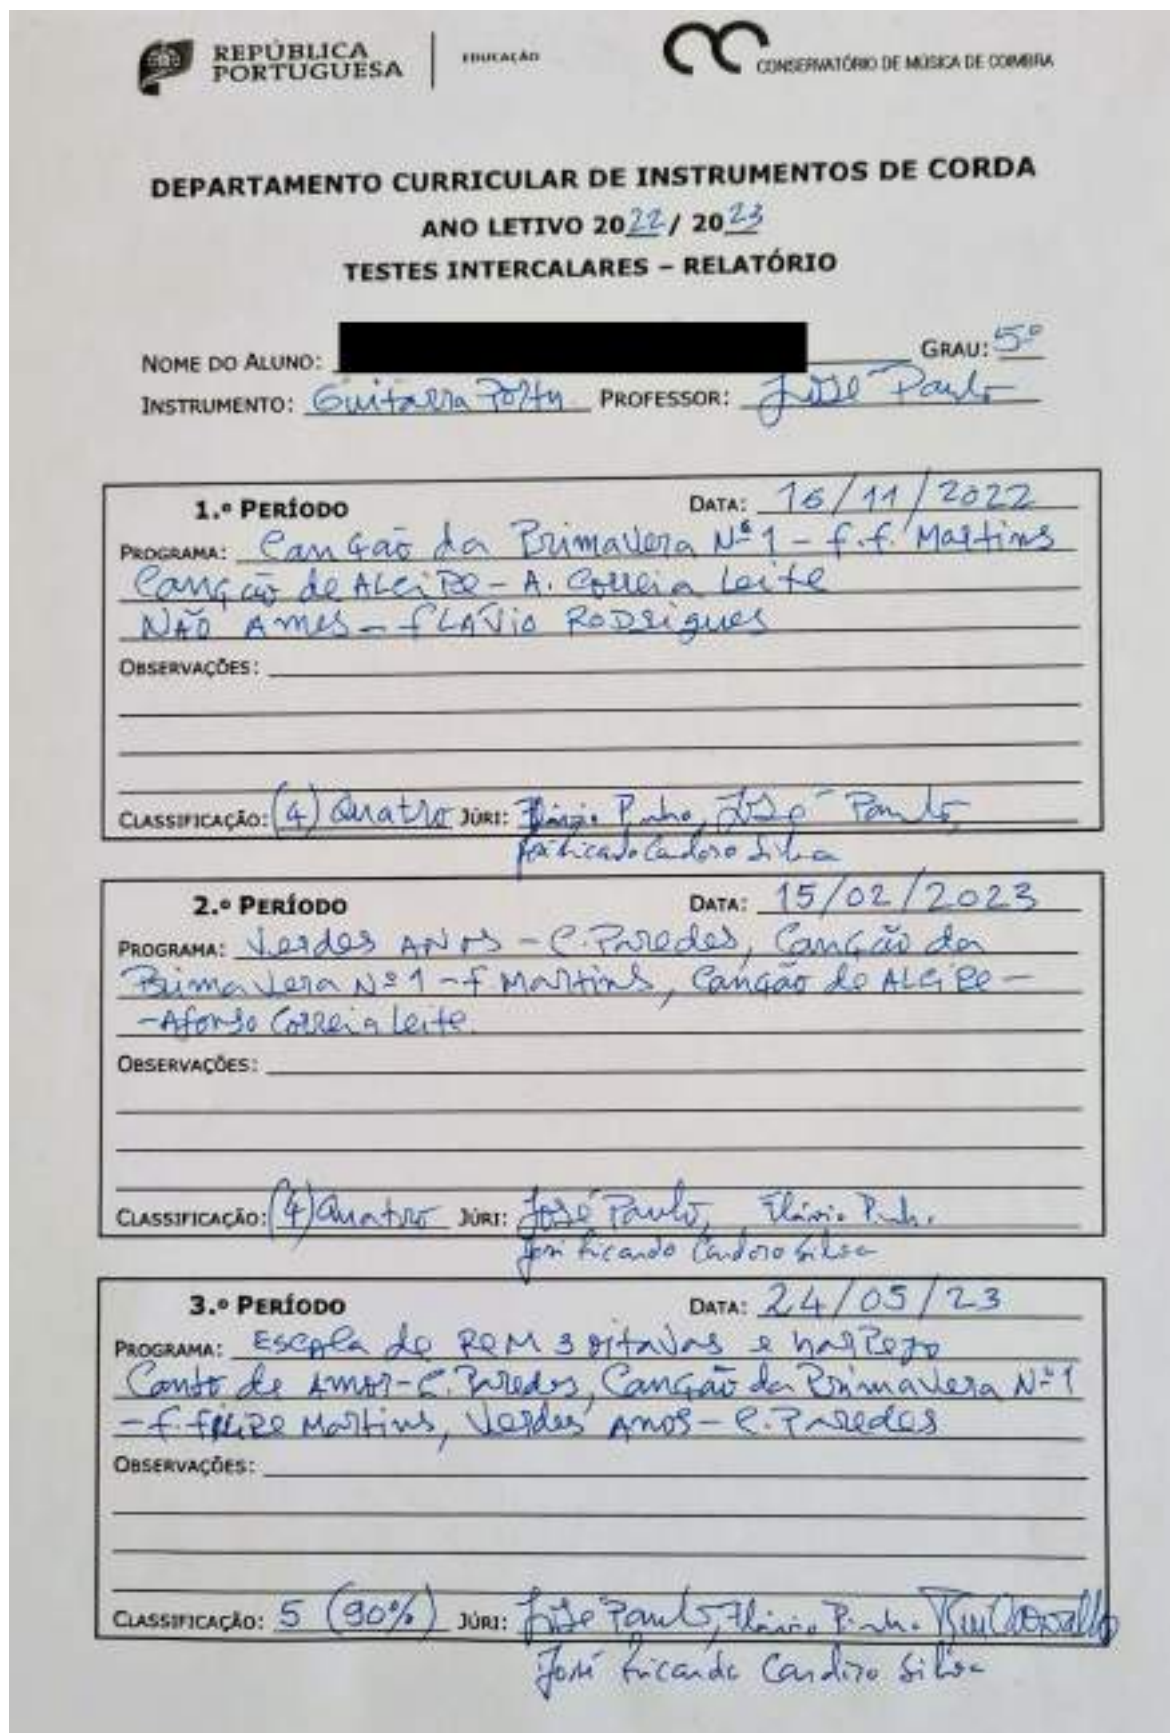 REPÚBLICA
PORTUGUESA
EDUCAÇÃO
CONSERVATÓRIO DE MÚSICA DE COIMBRA
DEPARTAMENTO CURRICULAR DE INSTRUMENTOS DE CORDA
ANO LETIVO 2022 / 2023
TESTES INTERCALARES – RELATÓRIO
NOME DO ALUNO: GRAU: 5º
INSTRUMENTO: Guitarra Portu PROFESSOR: José Paulo
1.º PERÍODO DATA: 16/11/2022
PROGRAMA: Canção da Primavera Nº 1 - f.f. Martins
Canção de ALCIPE - A. Correia Leite
NÃO AMES - FLÁVIO RODRIGUES
OBSERVAÇÕES:
CLASSIFICAÇÃO: (4) Quatro JÚRI: Flávio Pinho, José Paulo,
José Ricardo Cardoso Silva
2.º PERÍODO DATA: 15/02/2023
PROGRAMA: Verdes ANOS - C. Paredes, Canção da
Primavera Nº 1 - f Martins, Canção de ALCIPE -
- Afonso Correia Leite.
OBSERVAÇÕES:
CLASSIFICAÇÃO: (4) Quatro JÚRI: José Paulo, Flávio Pinho
José Ricardo Cardoso Silva
3.º PERÍODO DATA: 24/05/23
PROGRAMA: Escala de RéM 3 oitavas e harpejo
Canto de Amor - C. Paredes, Canção da Primavera Nº 1
- f. Filipe Martins, Verdes Anos - C. Paredes
OBSERVAÇÕES:
CLASSIFICAÇÃO: 5 (90%) JÚRI: José Paulo, Flávio Pinho Rui Carvalho
José Ricardo Cardoso Silva